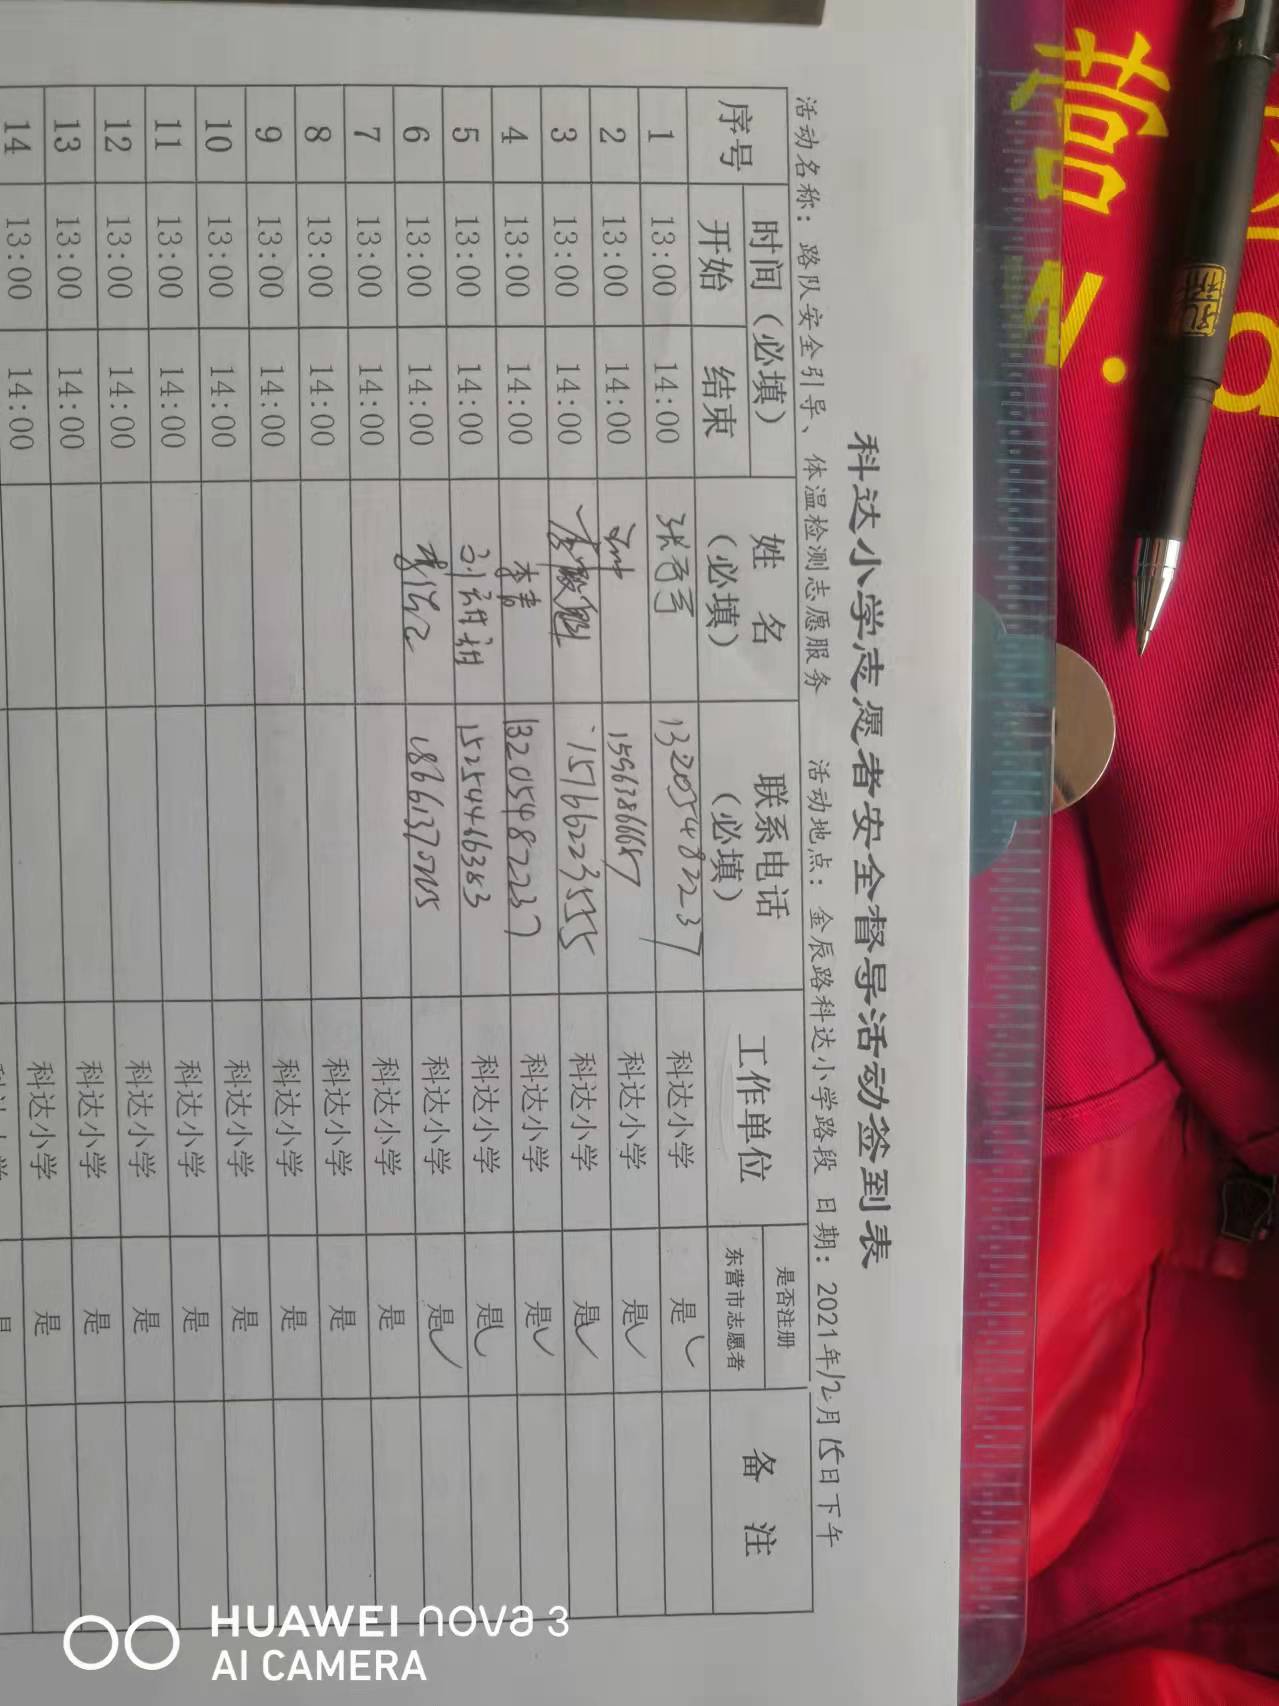 科达小学志愿者安全督导活动签到表
活动名称：路队安全引导、体温检测志愿服务 活动地点：金辰路科达小学路段 日期：2021年12月15日下午
序号 时间（必填） 姓 名（必填） 联系电话（必填） 工作单位 是否注册东营市志愿者 备 注
开始 结束
1 13:00 14:00 13205482237 科达小学 是✓
2 13:00 14:00 科达小学 是✓
3 13:00 14:00 15766223555 科达小学 是✓
4 13:00 14:00 李青 13205482237 科达小学 是✓
5 13:00 14:00 刘甜甜 15254466383 科达小学 是✓
6 13:00 14:00 科达小学 是✓
7 13:00 14:00 科达小学 是
8 13:00 14:00 科达小学 是
9 13:00 14:00 科达小学 是
10 13:00 14:00 科达小学 是
11 13:00 14:00 科达小学 是
12 13:00 14:00 科达小学 是
13 13:00 14:00 科达小学 是
14 13:00 14:00 科达小学 是
营
HUAWEI nova 3
AI CAMERA